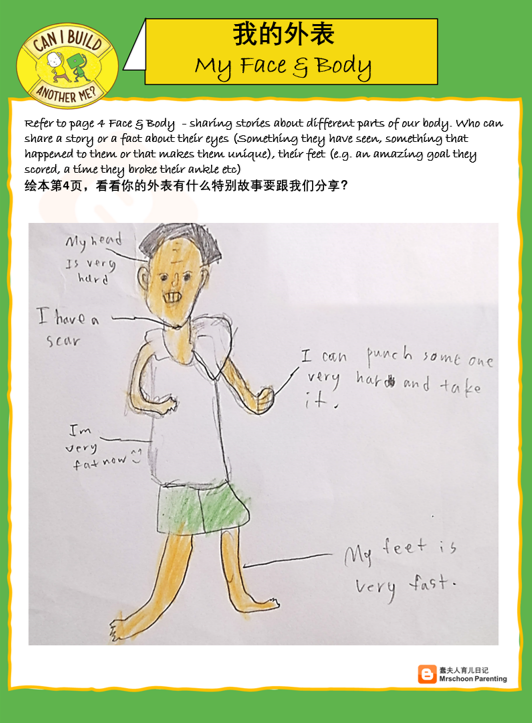 CAN I BUILD
ANOTHER ME?
我的外表
My Face & Body
Refer to page 4 Face & Body - sharing stories about different parts of our body. Who can
share a story or a fact about their eyes (Something they have seen, something that
happened to them or that makes them unique), their feet (e.g. an amazing goal they
scored, a time they broke their ankle etc)
绘本第4页，看看你的外表有什么特别故事要跟我们分享？
My head
Is very
hard
I have a
scar
I can punch some one
very hard and take
it.
Im
very
fat now
My feet is
very fast.
蠢夫人育儿日记
Mrschoon Parenting